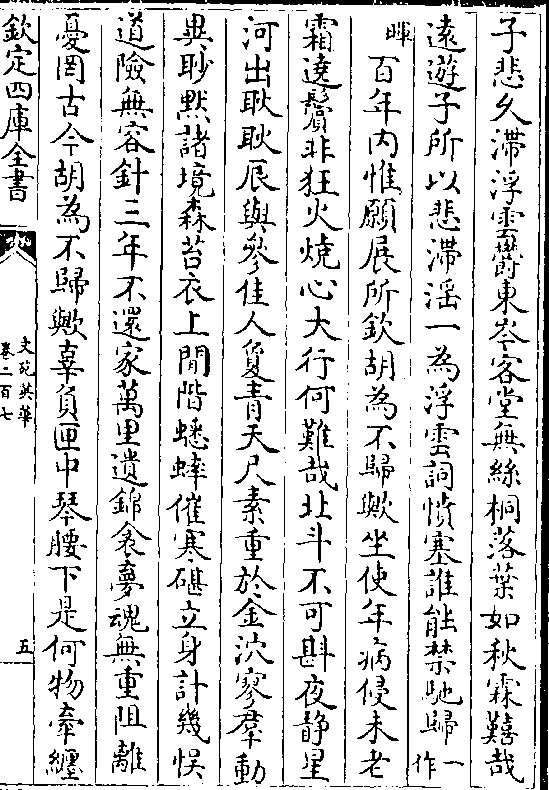 子悲久滯浮雲鬱東岑客堂無絲桐落葉如秋霖艱哉
遠遊子所以悲滯滛一為浮雲詞憤塞誰能禁馳歸一作
暉百年内惟願展所欽胡為不歸歟坐使年病侵未老
霜遶鬢非狂火燒心大行何難哉北斗不可斟夜静星
河出耿耿辰與參佳人夐青天尺素重於金泬寥羣動
異眇默諸境森苔衣上閒階蟋蟀催寒碪立身計幾悮
道險無容針三年不還家萬里遺錦衾夢魂無重阻離
憂罔古今胡為不歸歟辜負匣中琴腰下是何物牽纒
欽定四庫全書
文苑英華
卷二百七
五